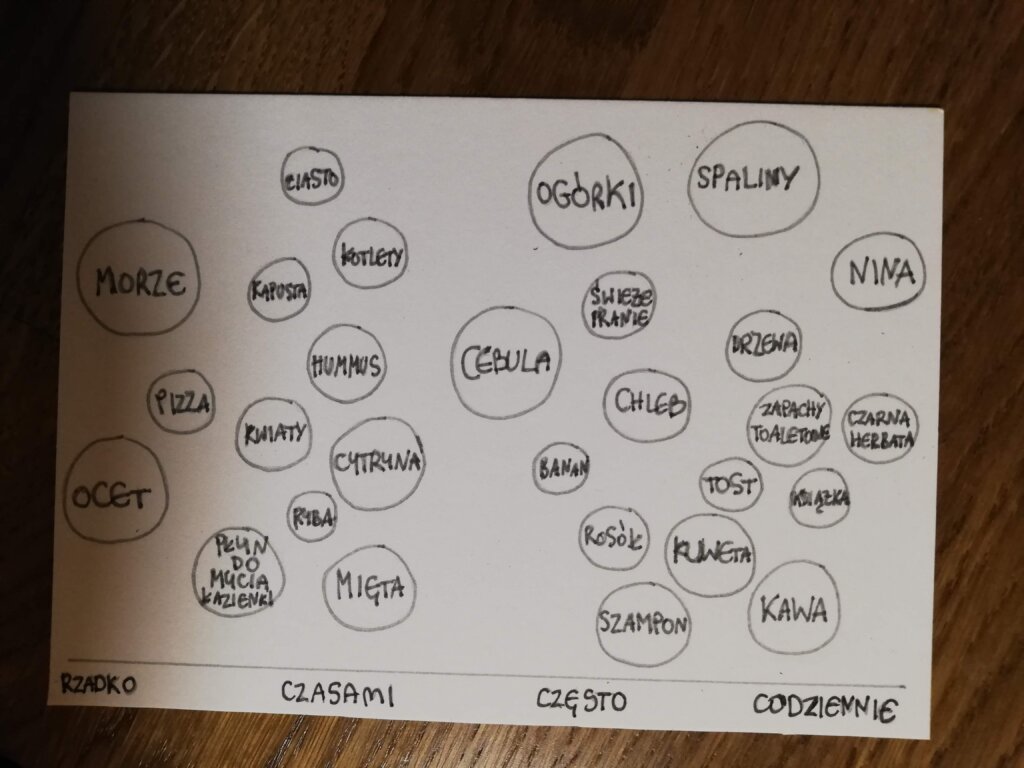 CIASTO
OGÓRKI
SPALINY
MORZE
KOTLETY
KAPUSTA
NINA
ŚWIEŻE
PRANIE
HUMMUS
CEBULA
DRZEWA
PIZZA
CHLEB
ZAPACHY
TOALETOWE
CZARNA
HERBATA
KWIATY
CYTRYNA
BANAN
TOST
KSIĄŻKA
OCET
RYBA
ROSÓŁ
KUWETA
PŁYN
DO
MYCIA
ŁAZIENKI
MIĘTA
SZAMPON
KAWA
RZADKO
CZASAMI
CZĘSTO
CODZIENNIE